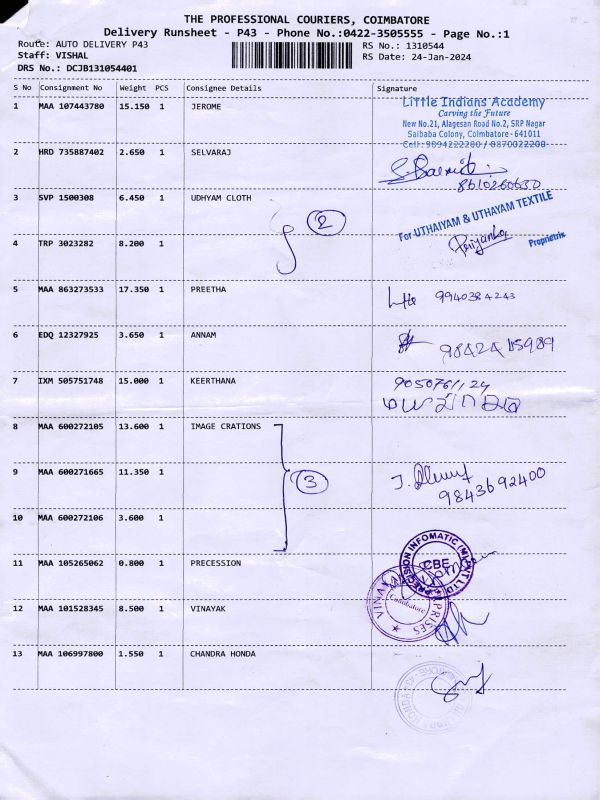 THE PROFESSIONAL COURIERS, COIMBATORE
Delivery Runsheet - P43 - Phone No.:0422-3505555 - Page No.:1
Route: AUTO DELIVERY P43 RS No.: 1310544
Staff: VISHAL RS Date: 24-Jan-2024
DRS No.: DCJB131054401
S No Consignment No Weight PCS Consignee Details Signature
1 MAA 107443780 15.150 1 JEROME
Little Indians Academy
Carving the Future
New No.21, Alagesan Road No.2, SRP Nagar
Saibaba Colony, Coimbatore - 641011
Cell: 9894222200 / 8870022200
2 HRD 735887402 2.650 1 SELVARAJ
8610260630
3 SVP 1500308 6.450 1 UDHYAM CLOTH
2
For UTHAIYAM & UTHAYAM TEXTILE
Priyanka
Proprietrix
4 TRP 3023282 8.200 1
5 MAA 863273533 17.350 1 PREETHA 9940384243
6 EDQ 12327925 3.650 1 ANNAM
7 IXM 505751748 15.000 1 KEERTHANA
8 MAA 600272105 13.600 1 IMAGE CRATIONS
9 MAA 600271665 11.350 1
3
9843692400
10 MAA 600272106 3.600 1
11 MAA 105265062 0.800 1 PRECESSION
CBE
12 MAA 101528345 8.500 1 VINAYAK
Coimbatore
13 MAA 106997800 1.550 1 CHANDRA HONDA